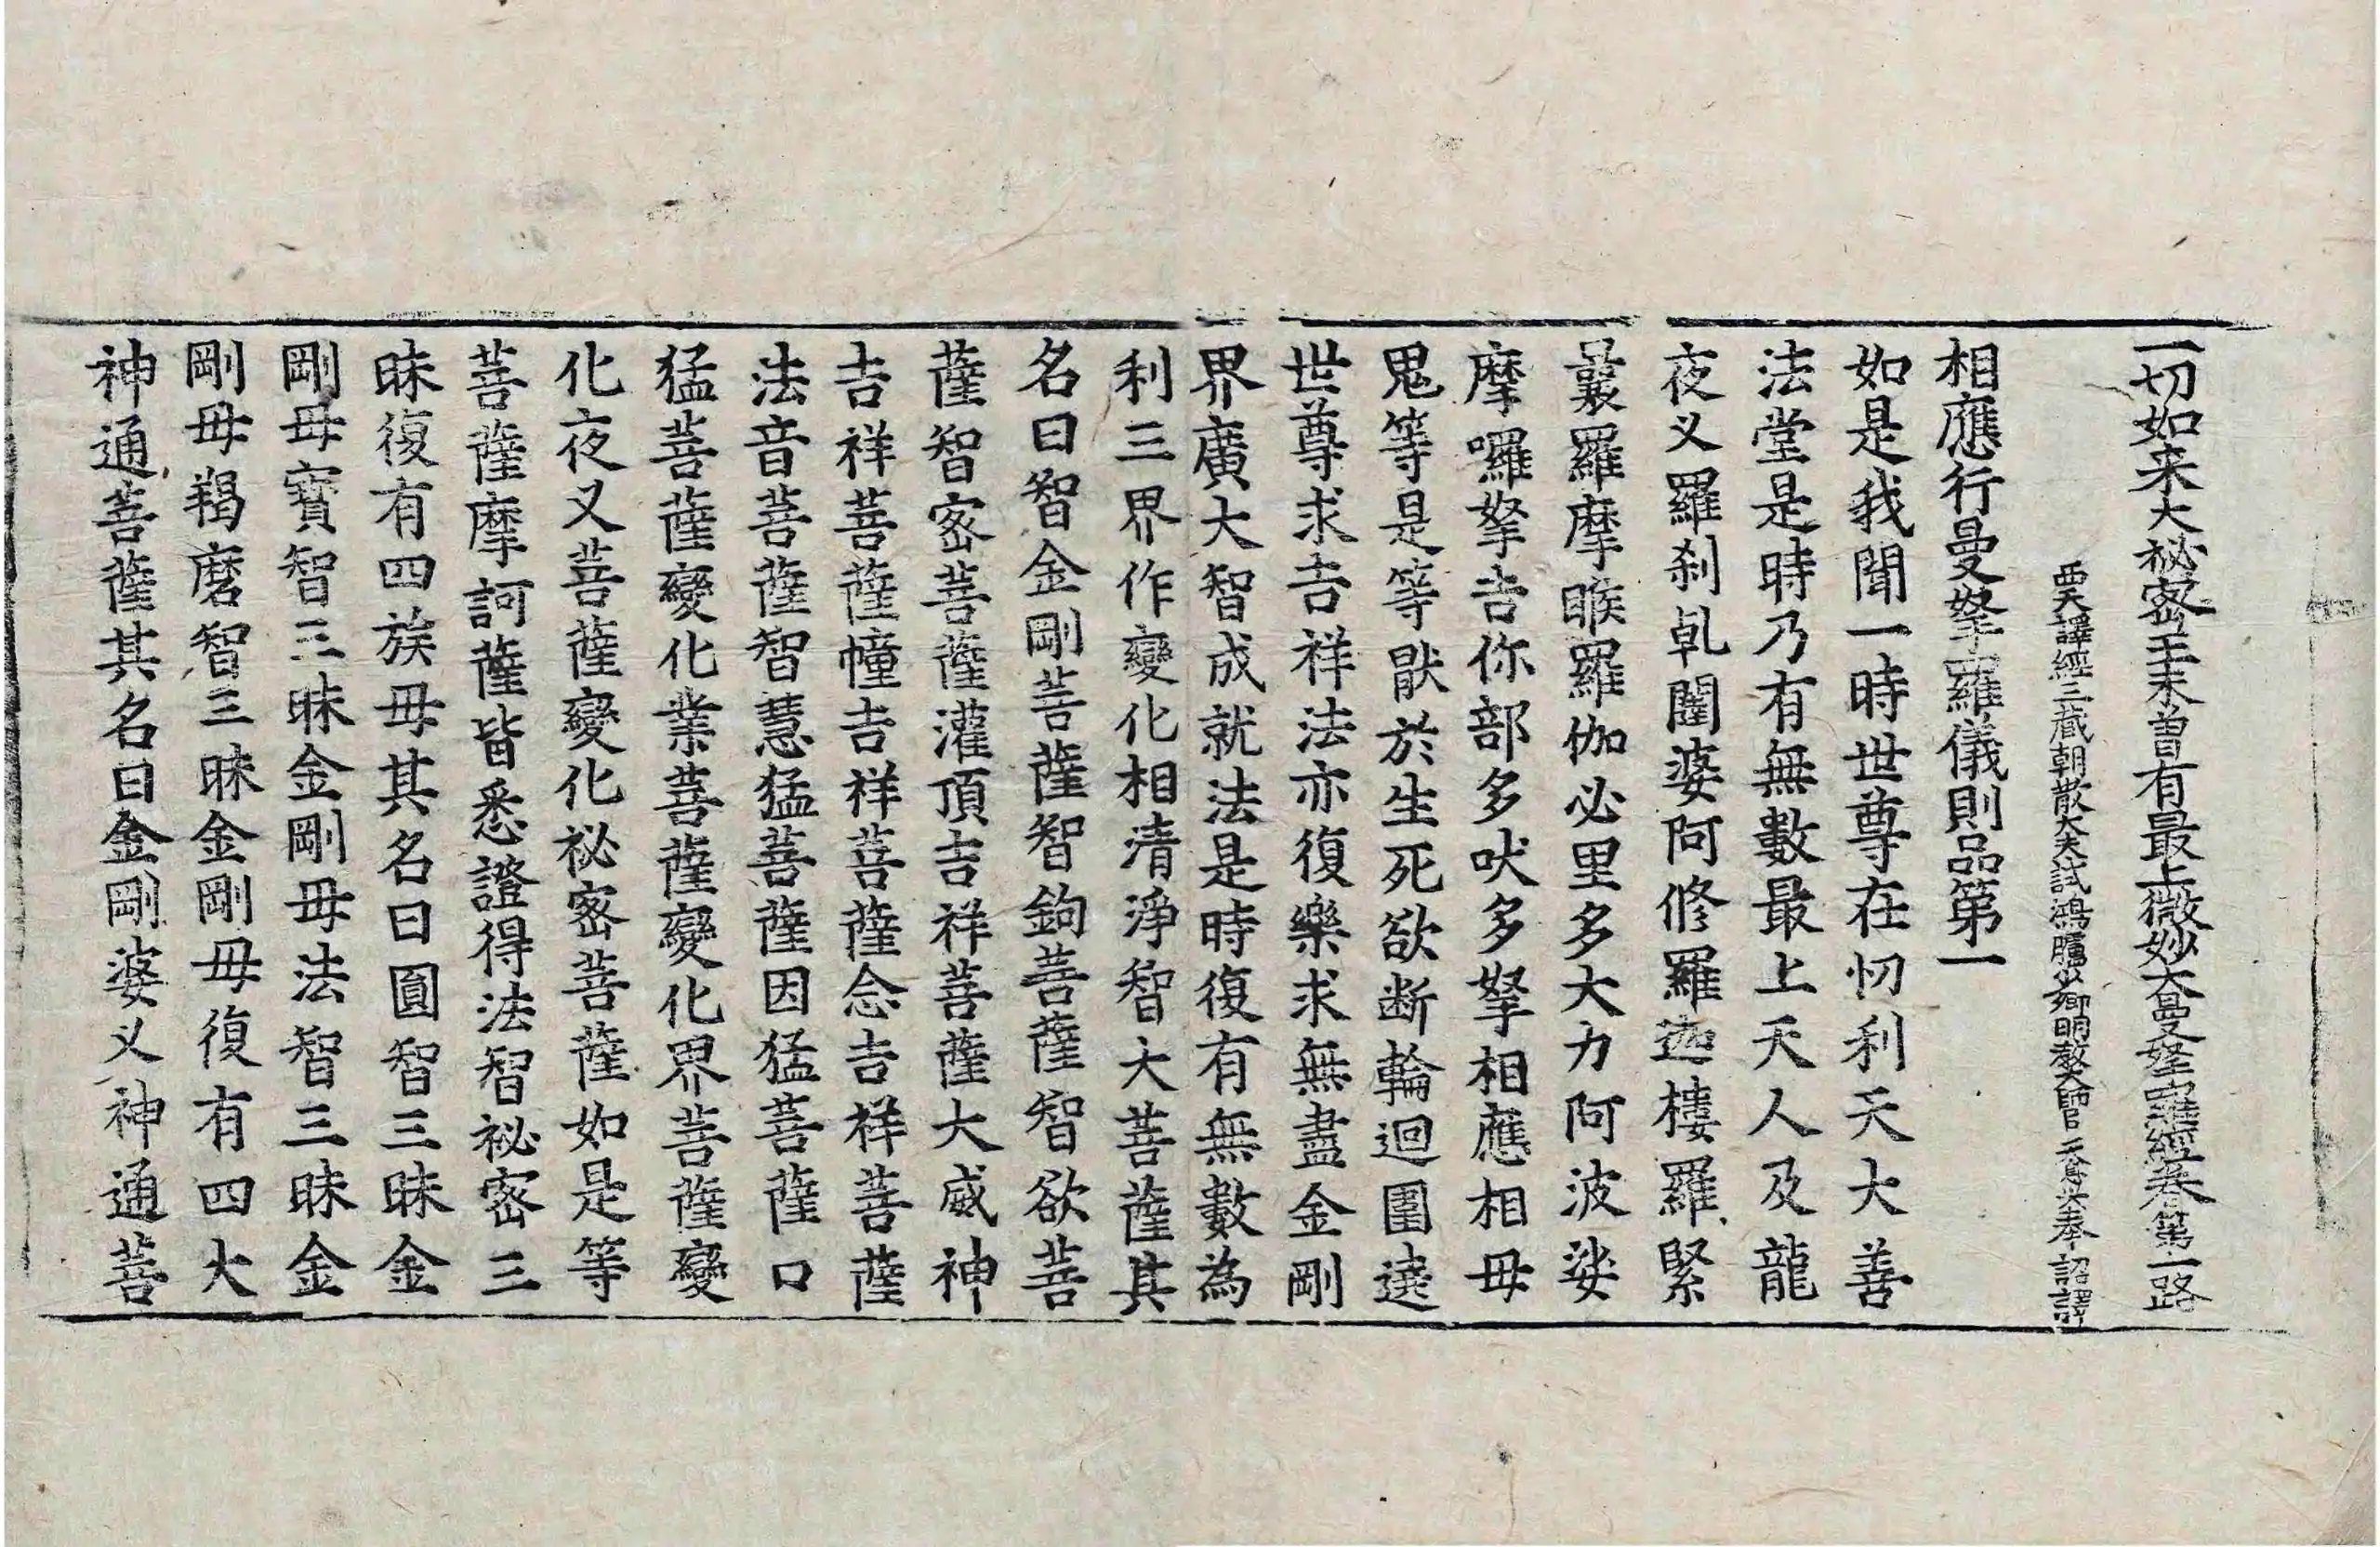 一切如来大祕密王未曽有最上微妙大曼拏羅經卷第一路
西天譯經三藏朝散大夫試鴻臚少卿明教大師臣天息災奉詔譯
相應行曼拏羅儀則品第一
如是我聞一時世尊在忉利天大善
法堂是時乃有無數最上天人及龍
夜义羅刹乹闥婆阿修羅迦樓羅緊
曩羅摩睺羅伽必里多大力阿波娑
摩囉拏吉你部多吠多拏相應相毋
鬼等是等猒於生死欲断輪迴圍遶
世尊求吉祥法亦復樂求無盡金剛
界廣大智成就法是時復有無數為
利三界作變化相清淨智大菩薩其
名曰智金剛菩薩智鉤菩薩智欲菩
薩智密菩薩灌頂吉祥菩薩大威神
吉祥菩薩幢吉祥菩薩念吉祥菩薩
法音菩薩智慧猛菩薩因猛菩薩口
猛菩薩變化業菩薩變化界菩薩變
化夜叉菩薩變化祕密菩薩如是等
菩薩摩訶薩皆悉證得法智祕密三
昧復有四族毋其名曰圓智三昧金
剛毋寳智三昧金剛毋法智三昧金
剛毋羯磨智三昧金剛毋復有四大
神通菩薩其名曰金剛婆义神通菩